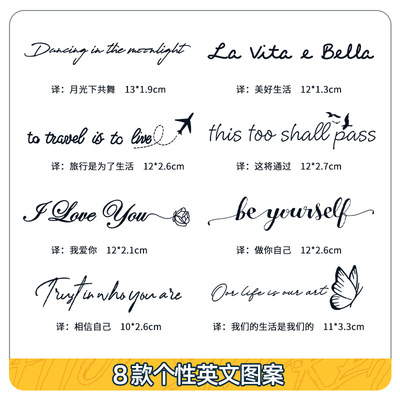 Dancing in the moonlight
译：月光下共舞 13*1.9cm
La Vita e Bella
译：美好生活 12*1.3cm
to travel is to live
译：旅行是为了生活 12*2.6cm
this too shall pass
译：这将通过 12*2.7cm
I Love You
译：我爱你 12*2.1cm
be yourself
译：做你自己 12*2.6cm
Trust in who you are
译：相信自己 10*2.6cm
Our life is our art
译：我们的生活是我们的 11*3.3cm
8款个性英文图案